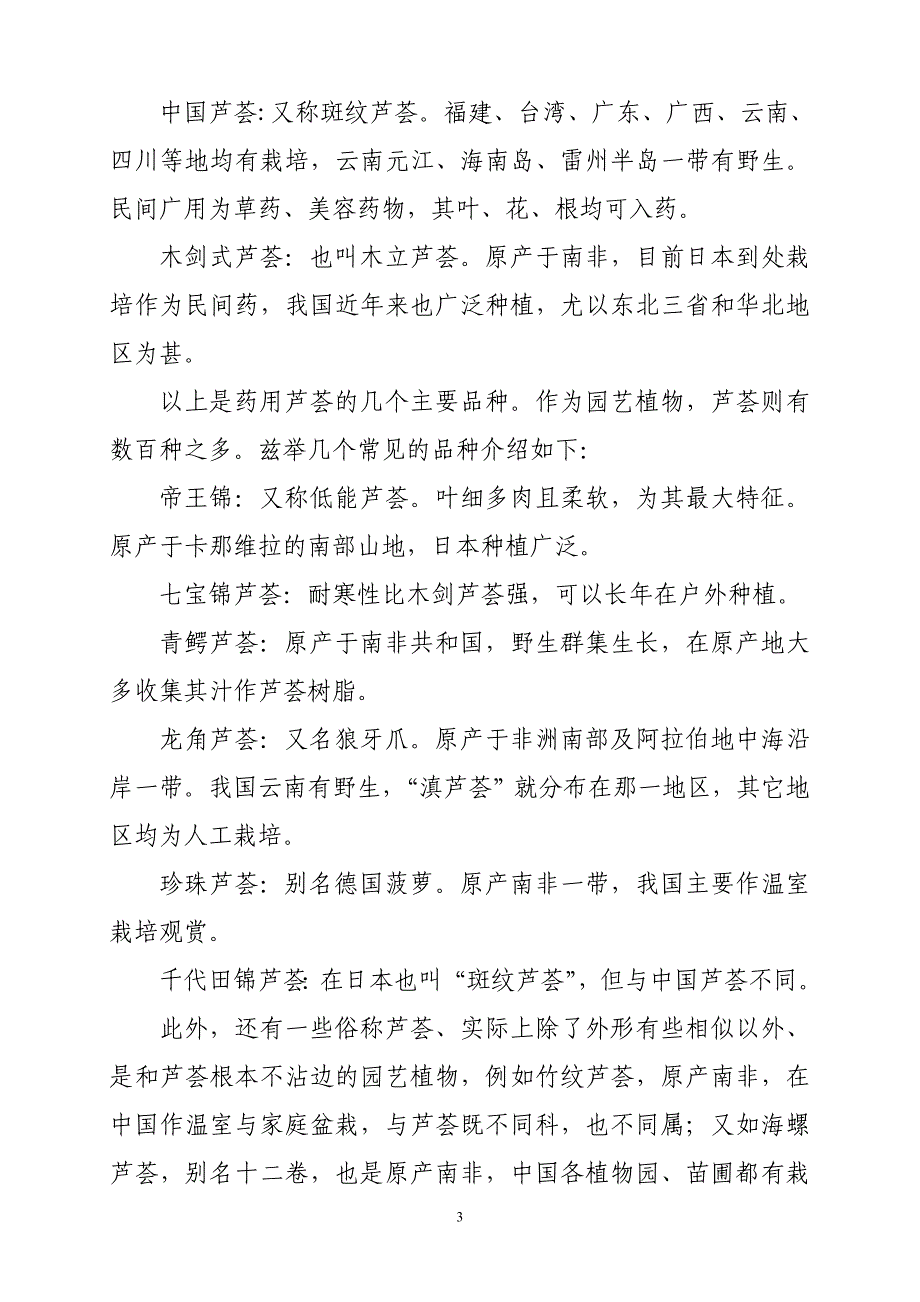 中国芦荟：又称斑纹芦荟。福建、台湾、广东、广西、云南、
四川等地均有栽培，云南元江、海南岛、雷州半岛一带有野生。
民间广用为草药、美容药物，其叶、花、根均可入药。
木剑式芦荟：也叫木立芦荟。原产于南非，目前日本到处栽
培作为民间药，我国近年来也广泛种植，尤以东北三省和华北地
区为甚。
以上是药用芦荟的几个主要品种。作为园艺植物，芦荟则有
数百种之多。兹举几个常见的品种介绍如下：
帝王锦：又称低能芦荟。叶细多肉且柔软，为其最大特征。
原产于卡那维拉的南部山地，日本种植广泛。
七宝锦芦荟：耐寒性比木剑芦荟强，可以长年在户外种植。
青鳄芦荟：原产于南非共和国，野生群集生长，在原产地大
多收集其汁作芦荟树脂。
龙角芦荟：又名狼牙爪。原产于非洲南部及阿拉伯地中海沿
岸一带。我国云南有野生，“滇芦荟”就分布在那一地区，其它地
区均为人工栽培。
珍珠芦荟：别名德国菠萝。原产南非一带，我国主要作温室
栽培观赏。
千代田锦芦荟：在日本也叫“斑纹芦荟”，但与中国芦荟不同。
此外，还有一些俗称芦荟、实际上除了外形有些相似以外、
是和芦荟根本不沾边的园艺植物，例如竹纹芦荟，原产南非，在
中国作温室与家庭盆栽，与芦荟既不同科，也不同属；又如海螺
芦荟，别名十二卷，也是原产南非，中国各植物园、苗圃都有栽
3